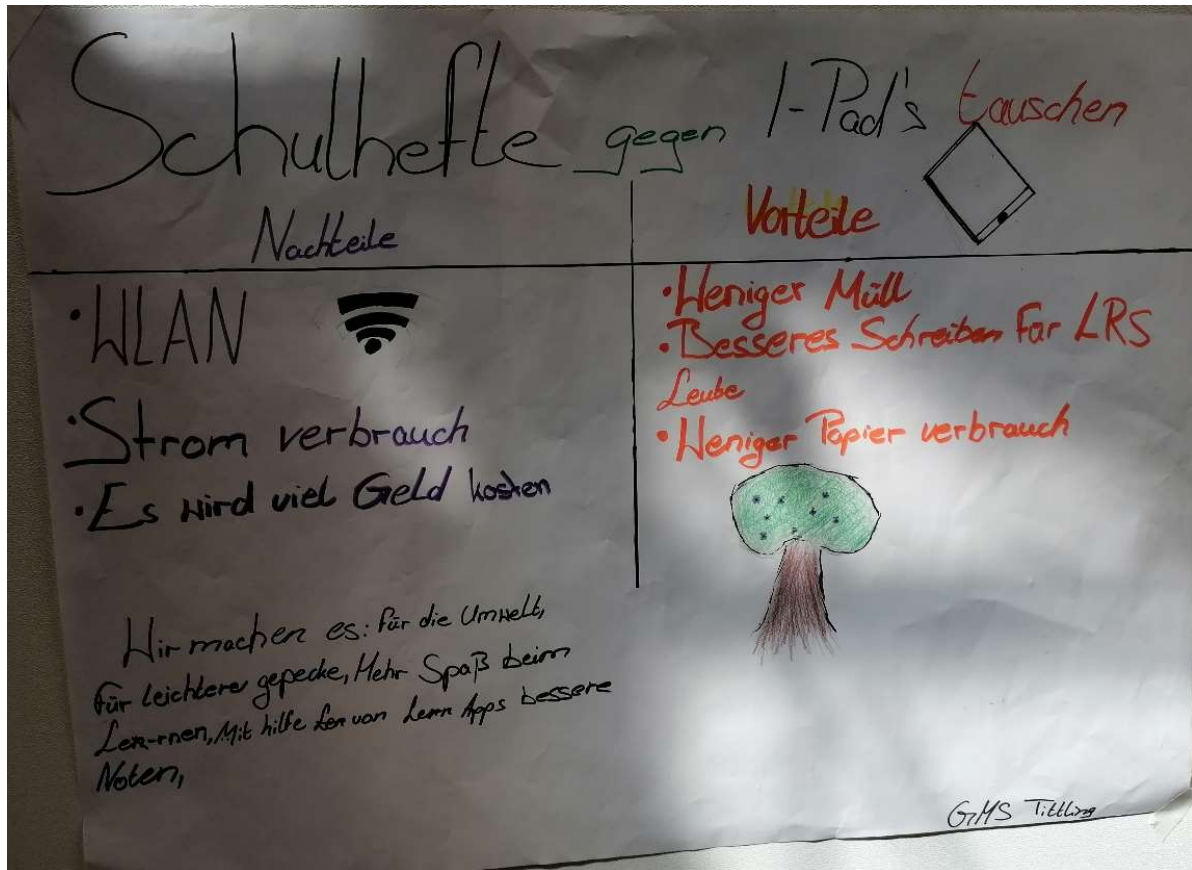 Schulhefte gegen I-Pad's tauschen
Nachteile
• WLAN
• Strom verbrauch
• Es wird viel Geld kosten
Vorteile
• Weniger Müll
• Besseres Schreiben Für LRS
Leute
• Weniger Papier verbrauch
Wir machen es: für die Umwelt,
für leichtere gepecke, Mehr Spaß beim
Ler-rnen, Mit hilfe von Lern Apps bessere
Noten,
GMS Tittling